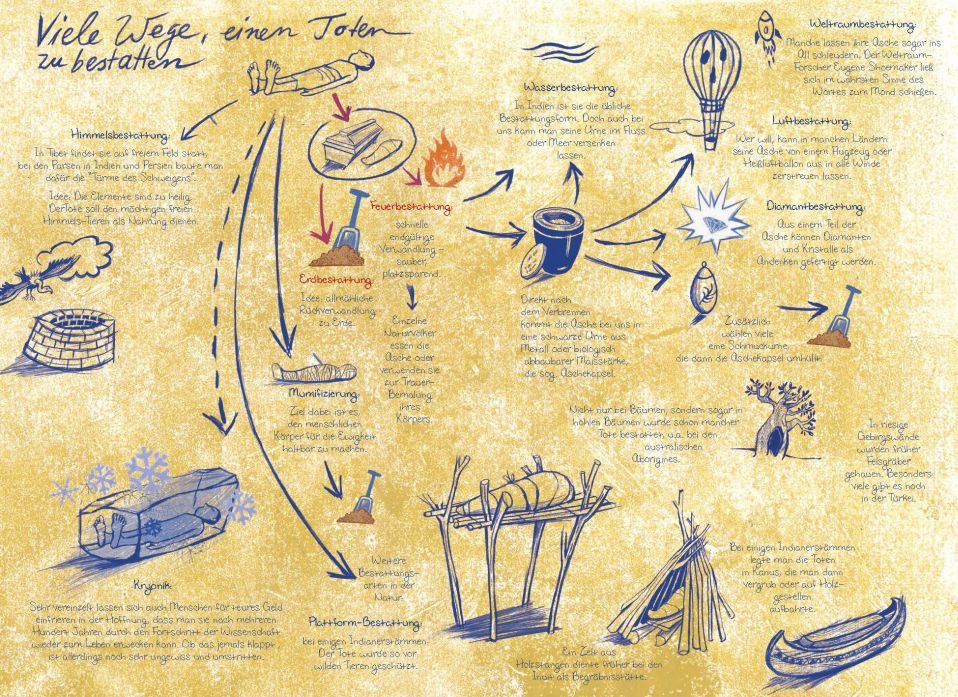 Viele Wege, einen Toten
zu bestatten
Himmelsbestattung:
In Tibet findet sie auf freiem Feld statt,
bei den Parsen in Indien und Persien baute man
dafür die "Türme des Schweigens".
Idee: Die Elemente sind zu heilig.
Der Tote soll den mächtigen freien
Himmels-Tieren als Nahrung dienen.
Feuerbestattung:
schnelle
endgültige
Verwandlung -
sauber,
platzsparend.
Einzelne
Naturvölker
essen die
Asche oder
verwenden sie
zur Trauer-
Bemalung
ihres
Körpers
Erdbestattung:
Idee: allmähliche
Rückverwandlung
zu Erde.
Mumifizierung:
Ziel dabei ist es,
den menschlichen
Körper für die Ewigkeit
haltbar zu machen.
Wasserbestattung:
In Indien ist sie die übliche
Bestattungsform. Doch auch bei
uns kann man seine Urne im Fluss
oder Meer versenken
lassen.
Weltraumbestattung:
Manche lassen ihre Asche sogar ins
All schleudern. Der Weltraum-
Forscher Eugene Shoemaker ließ
sich im wahrsten Sinne des
Wortes zum Mond schießen.
Luftbestattung:
Wer will, kann in manchen Ländern
seine Asche von einem Flugzeug oder
Heißluftballon aus in alle Winde
zerstreuen lassen.
Diamantbestattung:
Aus einem Teil der
Asche können Diamanten
und Kristalle als
Andenken gefertigt werden.
Direkt nach
dem Verbrennen
kommt die Asche bei uns in
eine schwarze Urne aus
Metall oder biologisch
abbaubarer Maisstärke,
die sog. Aschekapsel.
Zusätzlich
wählen viele
eine Schmuckurne,
die dann die Aschekapsel umhüllt.
Nicht nur bei Bäumen, sondern sogar in
hohlen Bäumen wurde schon mancher
Tote bestattet, u.a. bei den
australischen
Aborigines.
In riesige
Gebirgswände
wurden früher
Felsgräber
gehauen. Besonders
viele gibt es noch
in der Türkei.
Kryonik:
Sehr vereinzelt lassen sich auch Menschen für teures Geld
einfrieren in der Hoffnung, dass man sie nach mehreren
Hundert Jahren durch den Fortschritt der Wissenschaft
wieder zum Leben erwecken kann. Ob das jemals klappt
ist allerdings noch sehr ungewiss und umstritten.
Weitere
Bestattungs-
arten in der
Natur:
Plattform-Bestattung:
bei einigen Indianerstämmen.
Der Tote wurde so vor
wilden Tieren geschützt.
Ein Zelt aus
Holzstangen diente früher bei den
Inuit als Begräbnisstätte.
Bei einigen Indianerstämmen
legte man die Toten
in Kanus, die man dann
vergrub oder auf Holz-
gestellen
aufbahrte.